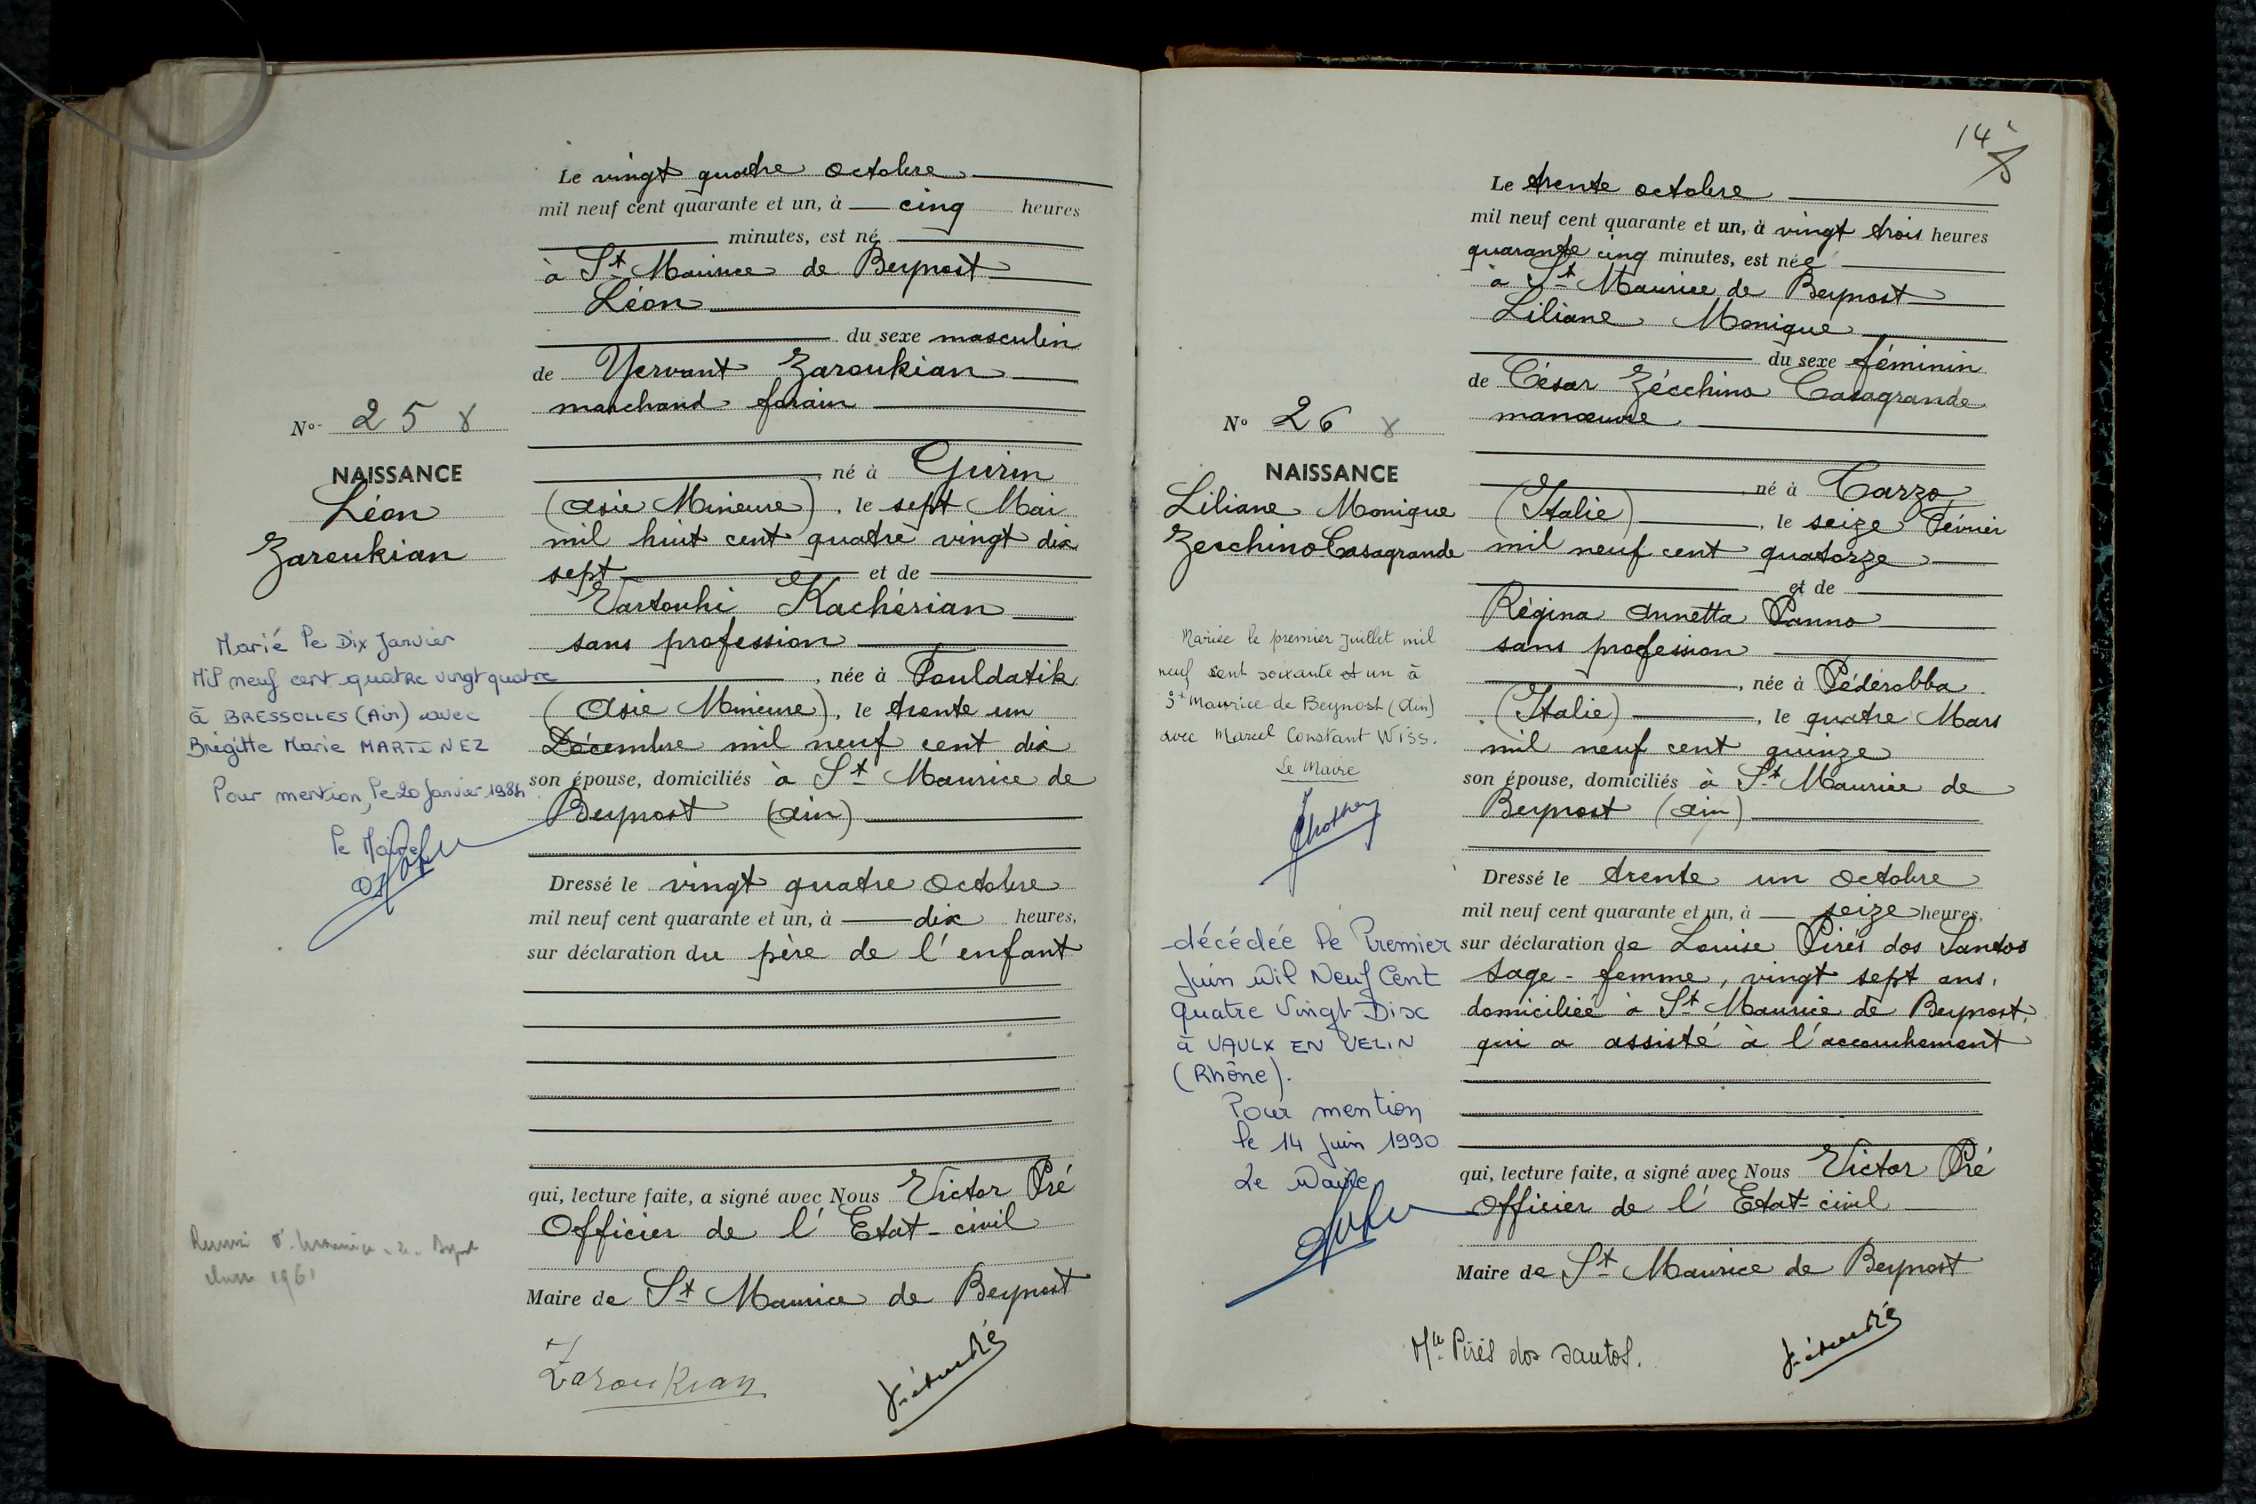 Le vingt quatre Octobre
mil neuf cent quarante et un, à cinq heures
minutes, est né
à St Maurice de Beynost
Léon
du sexe masculin
de Yervant Zaroukian
marchand forain
No 25
NAISSANCE
Léon
Zaroukian
né à Gurin
(Asie Mineure), le sept Mai
mil huit cent quatre vingt dix
sept et de
Vartouhi Kachérian
sans profession
, née à Fouldatik
(Asie Mineure), le trente un
Décembre mil neuf cent dix
son épouse, domiciliés à St Maurice de
Beynost (Ain)
Marié le Dix Janvier
Mil neuf cent quatre vingt quatre
à BRESSOLLES (Ain) avec
Brigitte Marie MARTINEZ
Pour mention, le 20 Janvier 1984
le Maire
Dressé le vingt quatre Octobre
mil neuf cent quarante et un, à dix heures,
sur déclaration du père de l'enfant
qui, lecture faite, a signé avec Nous Victor Pré
Officier de l'Etat-civil
Maire de St Maurice de Beynost
1961
Zaroukian
14
Le trente octobre
mil neuf cent quarante et un, à vingt trois heures
quarante cinq minutes, est née
à St Maurice de Beynost
Liliane Monique
du sexe féminin
de César Zécchino Casagrande
manœuvre
No 26
NAISSANCE
Liliane Monique
Zecchino Casagrande
né à Carzo
(Italie), le seize Février
mil neuf cent quatorze
et de
Régina Annetta Panno
sans profession
, née à Pédérobba
(Italie), le quatre Mars
mil neuf cent quinze
son épouse, domiciliés à St Maurice de
Beynost (Ain)
Mariée le premier Juillet mil
neuf cent soixante et un à
St Maurice de Beynost (Ain)
avec Marcel Constant WISS.
Le Maire
Dressé le trente un octobre
mil neuf cent quarante et un, à seize heures,
sur déclaration de Louise Pirès dos Santos
sage-femme, vingt sept ans,
domiciliée à St Maurice de Beynost,
qui a assisté à l'accouchement
décédée le Premier
Juin Mil Neuf Cent
Quatre Vingt Dix
à VAULX EN VELIN
(Rhône).
Pour mention
le 14 Juin 1990
Le Maire
qui, lecture faite, a signé avec Nous Victor Pré
Officier de l'Etat-civil
Maire de St Maurice de Beynost
Mlle Pirès dos Santos.